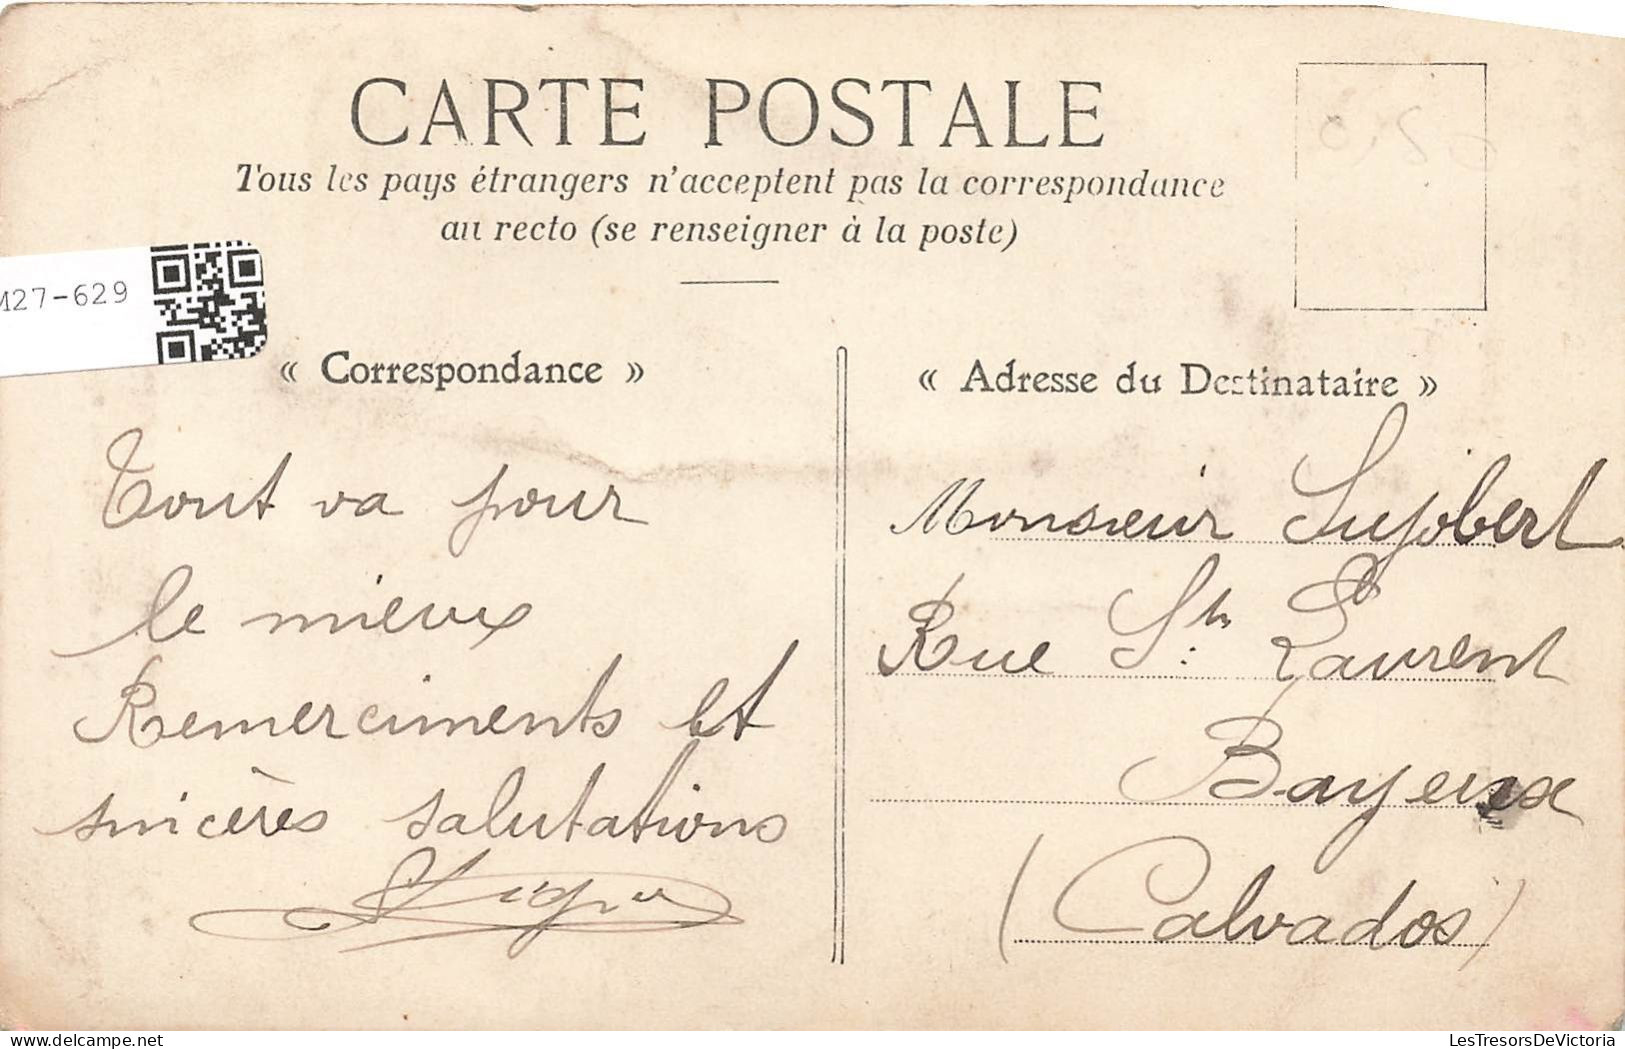 CARTE POSTALE
Tous les pays étrangers n'acceptent pas la correspondance
au recto (se renseigner à la poste)
M27-629
« Correspondance »
Tout va pour
le mieux
Remerciments et
sincères salutations
« Adresse du Destinataire »
Monsieur Lujobert
Rue St: Laurent
Bayeux
(Calvados)
LesTresorsDeVictoria